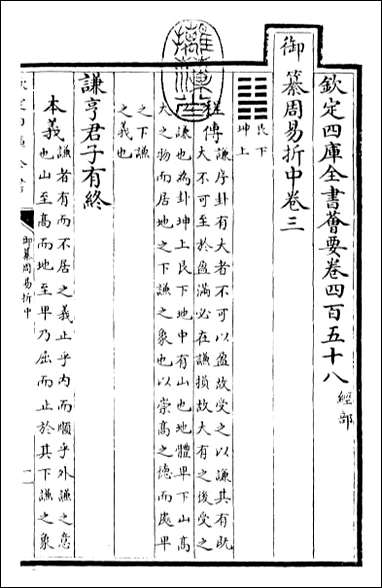 欽定四庫全書薈要卷四百五十八 經部
御纂周易折中卷三
艮下
坤上
程傳 謙序卦有大者不可以盈故受之以謙其有既
大不可至於盈滿必在謙損故大有之後受之
謙也為卦坤上艮下地中有山也地體卑下山高
大之物而居地之下謙之象也以崇高之德而處卑
之下謙
之義也
謙亨君子有終
本義 謙者有而不居之義止乎内而順乎外謙之意
也山至高而地至卑乃屈而止於其下謙之象
御纂周易折中